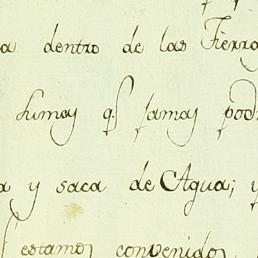 a dentro de las Tierra
humos q.e jamas pod
a y saca de Agua; y
estamos convenidos,